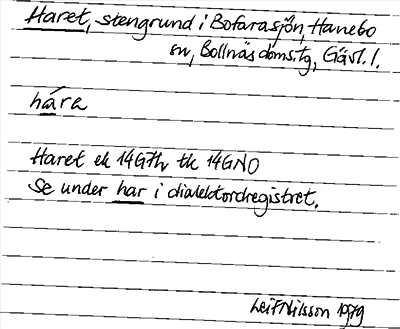 Haret, stengrund i Bofarasjön, Hanebo
sn, Bollnäs doms.tg, Gävl. l.
håra
Haret ek 14G7h tk 14GNO
Se under har i dialektordregistret.
Leif Nilsson 1979